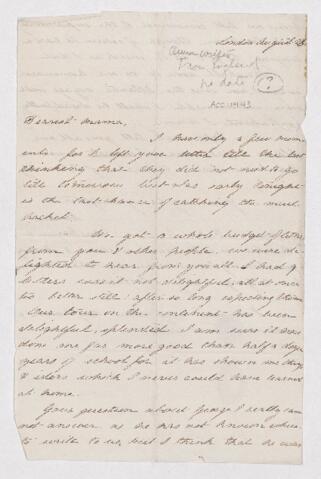 London August 28
Anna Wright
From England
no date ?
ACC 14143
Dearest Mama,
I have only a few mom
ents for I left your letter till the last
thinking that they did not not to go
till tomorrow but as early tonight
is the last chance of catching the mail
We got a whole budget of letters
from you & other people. we were de
lighted to hear from you all I had 9
letters wasn't it delightful, all at once
too better still, after so long expecting them
Our tour on the continent has been
delightful, splendid I am sure it has
done me far more good than half a dozen
years of school for it has shown me things
& ideas which I never could have learned
at home.
Your question about George I really can
not answer as he has not known where
to write to us, but I think that he was